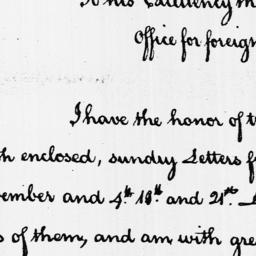 To his Excellency
Office for foreign
I have the honor of t
h enclosed, sundry Letters f
ember and 4th 18th and 21st
s of them, and am with gre